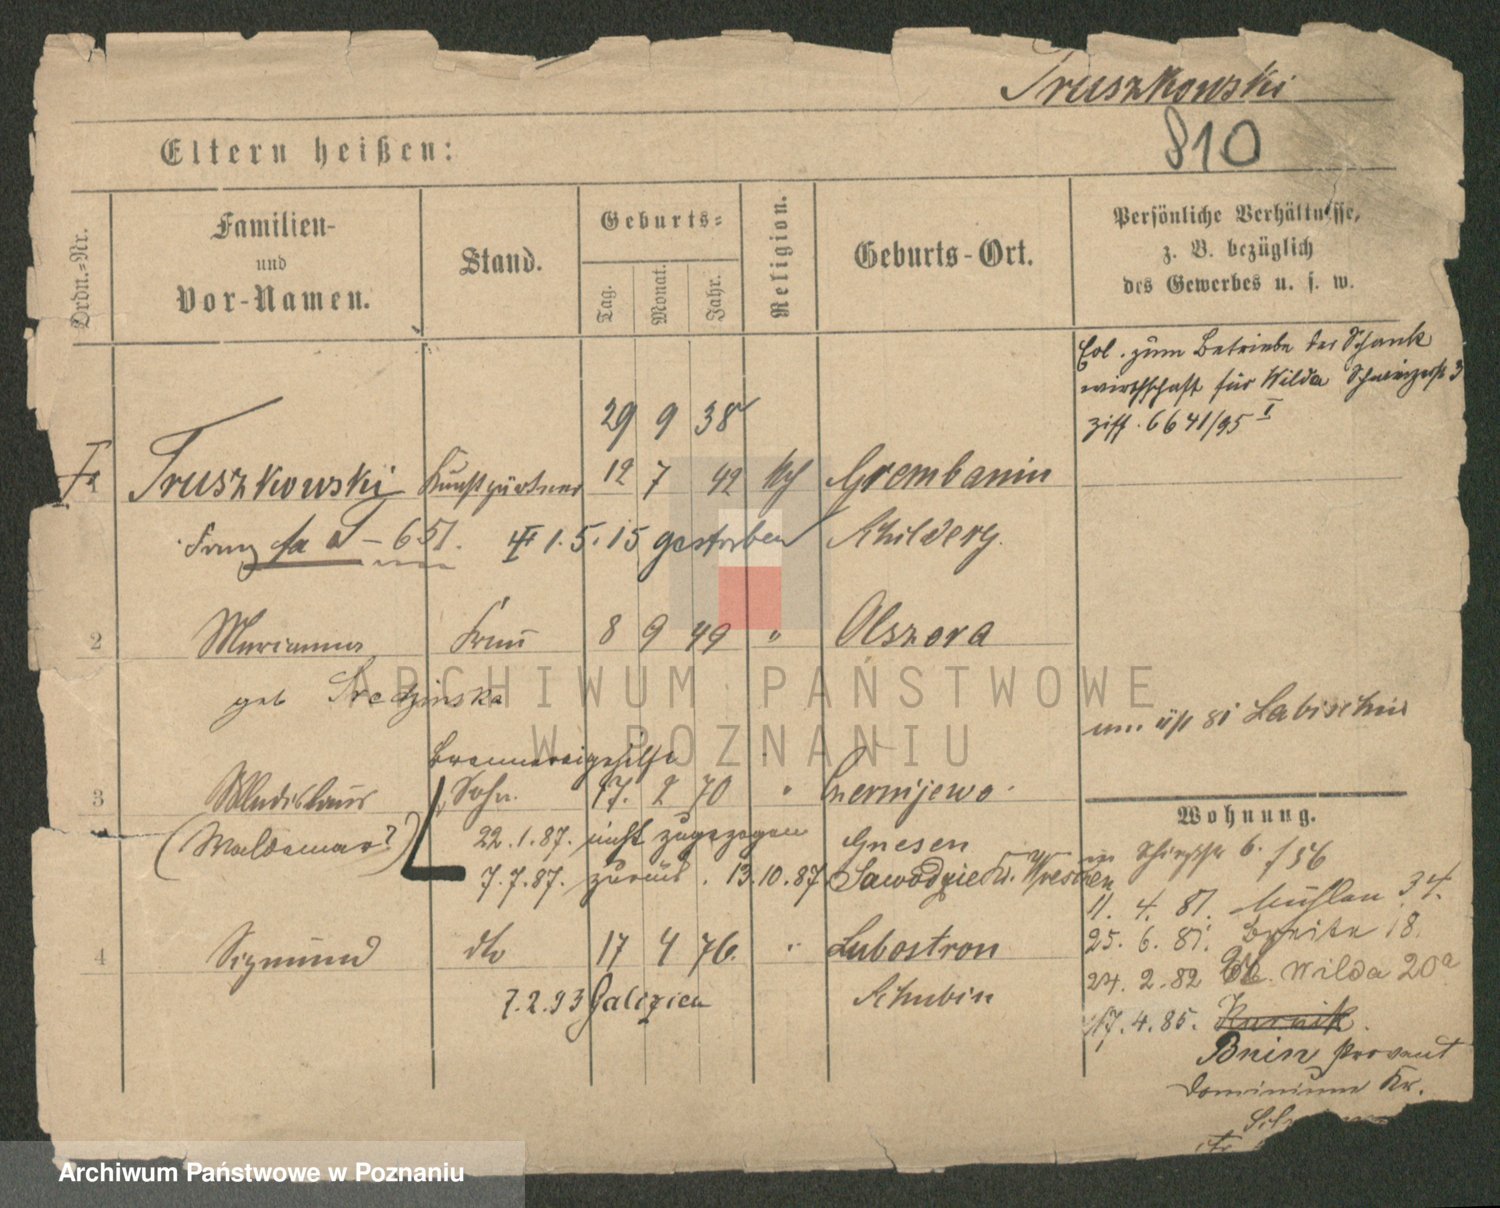 Truszkowski
810
Eltern heißen:
Ordn.-Nr.
Familien-
und
Vor-Namen.
Stand.
Geburts-
Tag.
Monat.
Jahr.
Religion.
Geburts-Ort.
Persönliche Verhältnisse,
z. B. bezüglich
des Gewerbes u. s. w.
zum Betriebe der Schank
wirthschaft für Wilda 3
ziff. 6641/95 I
29 9 38
1 Truszkowski Kunstgärtner 12 7 42 Kth Grembanin
Franz 651. 1.5.15 gestorben Schildberg.
2 Marianna Frau 8 9 49 " Olszowa
geb Sredzinska
um 81 Labischin
Brennereigehilfe
3 Wladislaus Sohn 17. 2 70 " Czerniejewo
(Waldemar?) 22.1.87. nicht zugezogen Gnesen
7.7.87. zurück. 13.10.87 Kr. Wreschen
4 Sigmund dto 17 4 76. " Lubostron
7.2.93 Galizien Schubin
Wohnung.
6. /56
11. 4. 81. Mühlen 34.
25. 6. 81. Breite 18.
24. 2. 82 Wilda 20a
17. 4. 85. Kurnik.
Bnin Provent
Dominium Kr.
ARCHIWUM PAŃSTWOWE
W POZNANIU
Archiwum Państwowe w Poznaniu